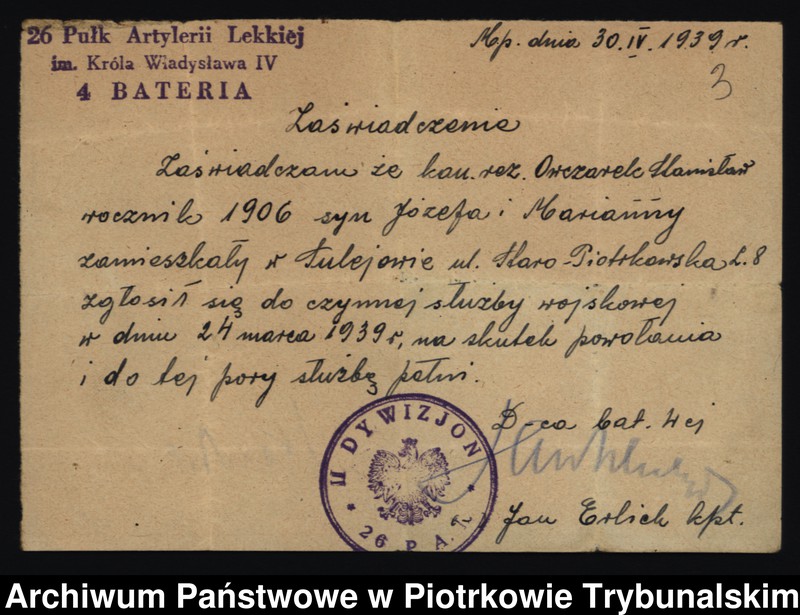 26 Pułk Artylerii Lekkiej
im. Króla Władysława IV
4 BATERIA
Mp. dnia 30.IV.1939 r.
3
Zaświadczenie
Zaświadczam że kan. rez. Owczarek Stanisław
rocznik 1906 syn Józefa i Marianny
zamieszkały w Sulejowie ul. Staro-Piotrkowska L. 8
zgłosił się do czynnej służby wojskowej
w dniu 24 marca 1939 r, na skutek powołania
i do tej pory służbę pełni.
D-ca bat. 4 ej
II DYWIZJON
* 26 P.A.L. *
Jan Erlich kpt.
Archiwum Państwowe w Piotrkowie Trybunalskim